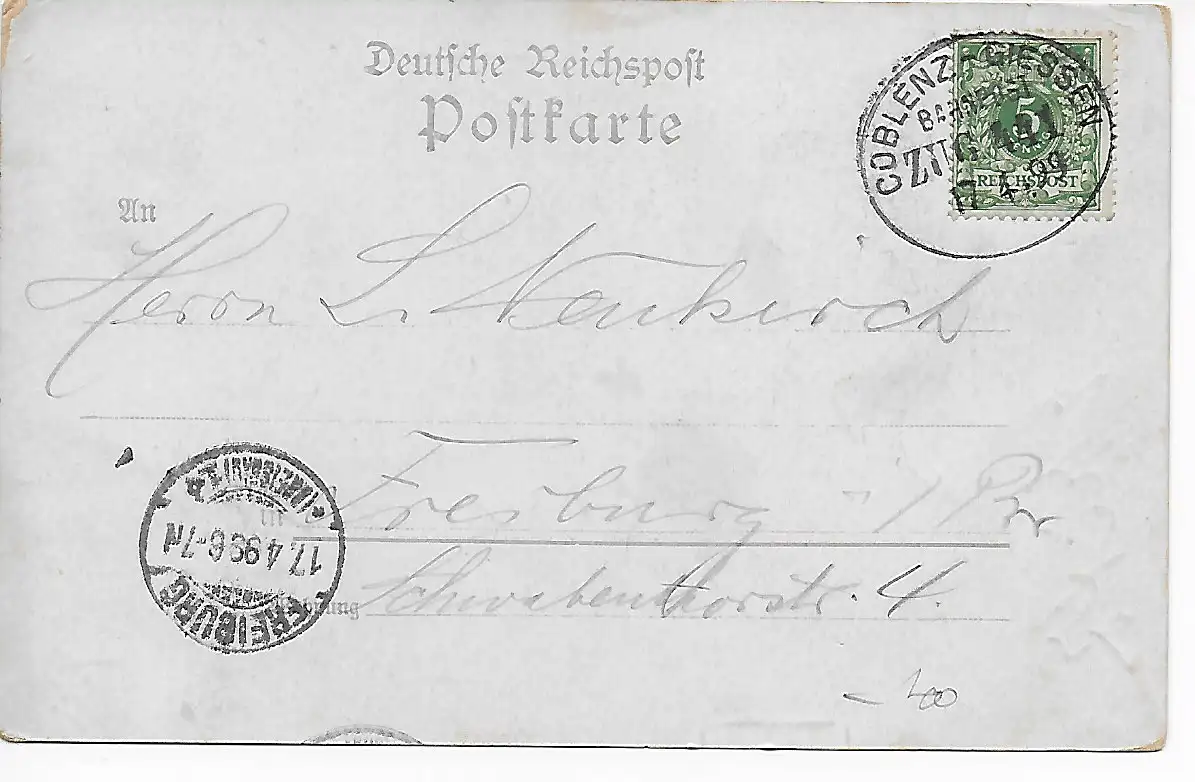 Deutsche Reichspost
Postkarte
COBLENZ-GIESSEN
ZUG
17 4.99
5
REICHSPOST
An
Herrn L. Neukirch
in Freiburg i/Br
Wohnung Schwabenthorstr. 4.
FREIBURG
17.4.99.6-7N